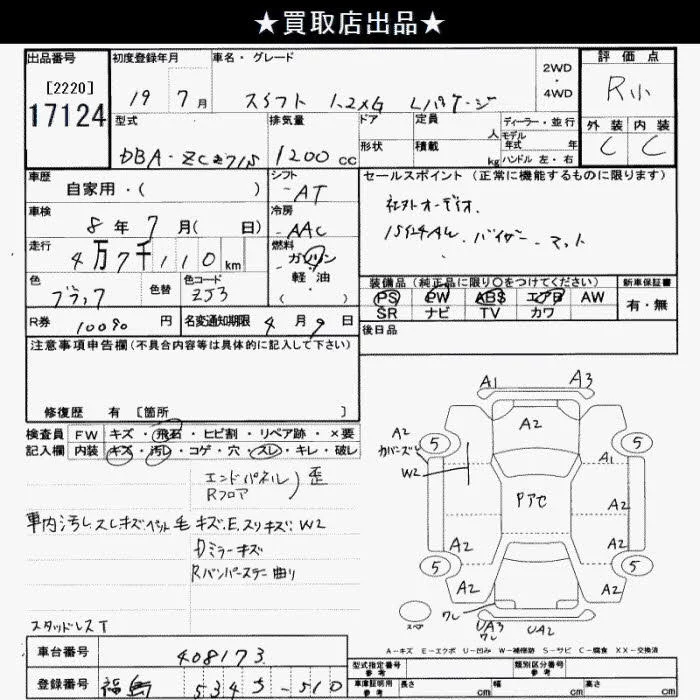 ★買取店出品★
出品番号
[2220]
17124
初度登録年月
19 7 月
車名・グレード
スイフト 1.2XG Lパケージ
2WD
・
4WD
評価点
R小
外装 内装
C C
型式
DBA-ZC71S
排気量
1200 cc
ドア
形状
定員
人
積載
kg
ディーラー・並行
モデル
年式 年
ハンドル 左・右
車歴
自家用・( )
シフト
AT
セールスポイント(正常に機能するものに限ります)
社外オーディオ.
15インチAW. バイザー. マット
車検
8 年 7 月( 日)
冷房
AAC
走行
4万7千110 km
燃料
ガソリン
軽・油
( )
色
ブラック
色替
色コード
ZJ3
装備品(純正品に限り〇をつけてください)
PS PW ABS エアB AW
SR ナビ TV カワ
新車保証書
有・無
R券
10090 円
名変通知期限 4 月 9 日
後日品
注意事項申告欄(不具合内容等は具体的に記入して下さい)
修復歴 有 [箇所 ]
検査員 FW キズ・飛石・ヒビ割・リペア跡・×要
記入欄 内装 キズ・汚レ・コゲ・穴・スレ・キレ・破レ
エンドパネル
Rフロア
) 歪
車内汚レスレキズ.ペット毛 キズ.E.スリキズ.W2
Dミラーキズ
Rバンパーステー曲り
スタッドレスT
A1 A3
A2
A2
カバーズレ
W2
5 5
A1
Pアセ
A2
A2 A2
5 5
A2 A2
ワレ
スペア
UA3
ワレ
UA2
A-キズ E-エクボ U-凹み W-補修跡 S-サビ C-腐食 XX-交換済
車台番号
408173
登録番号
福島 534 5-510
型式指定番号
参考
類別区分番号
参考
車庫証明用
参考
長さ cm
幅 cm
高さ cm